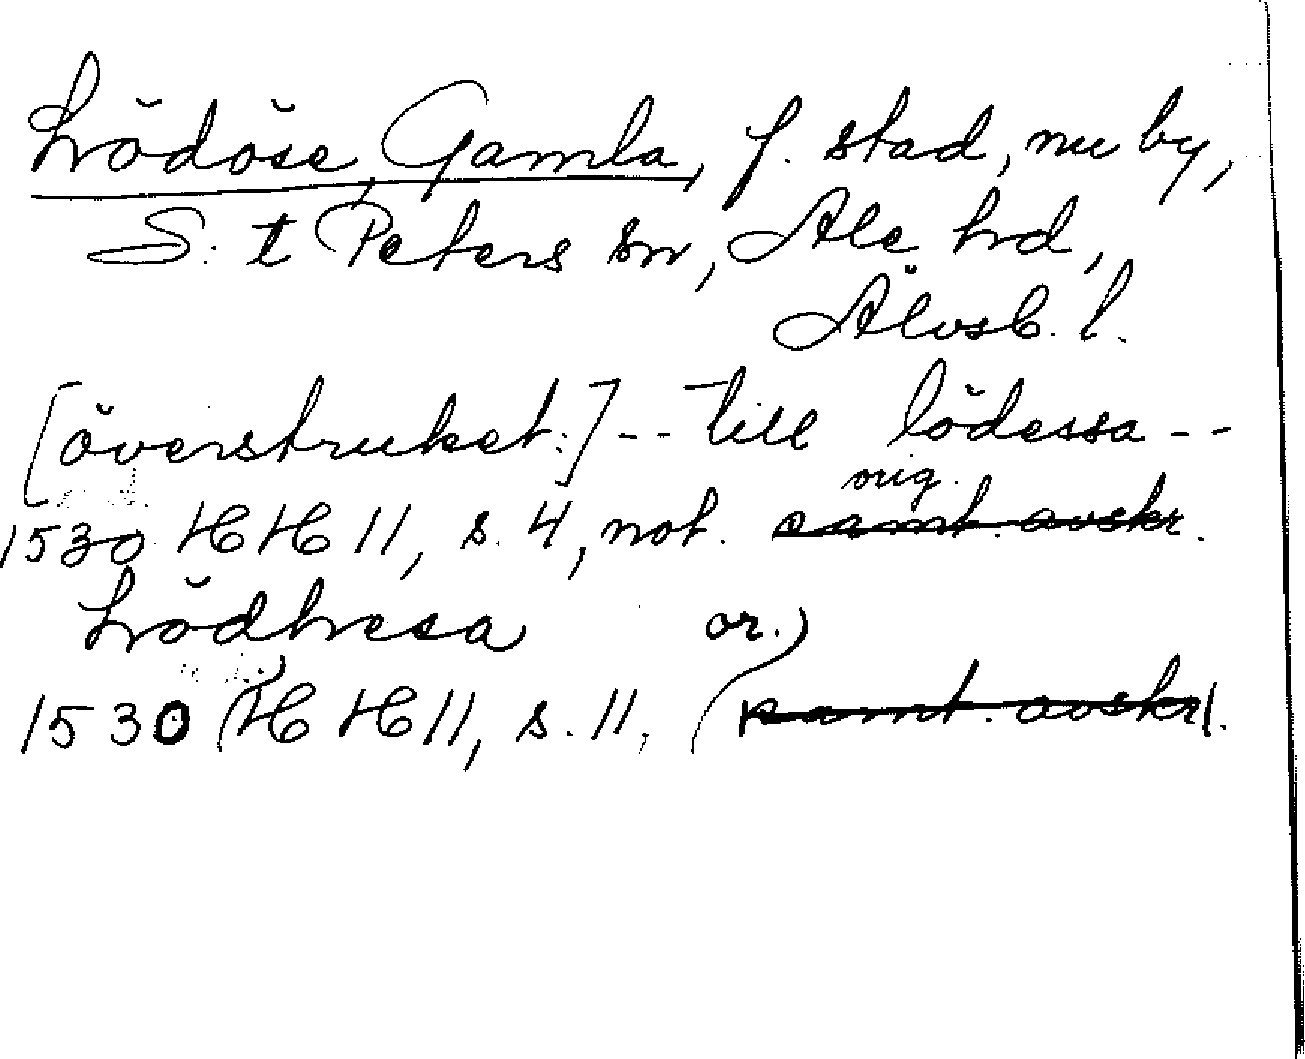 Lödöse, Gamla, f. stad, nu by,
S:t Peters sn, Ale hd,
Älvsb. l.
[överstruket:] -- till lödessa --
orig.
1530 HH 11, s. 4, not. samt. avskr.
Lödhesa or.)
1530 (HH 11, s. 11, (samt. avskr).